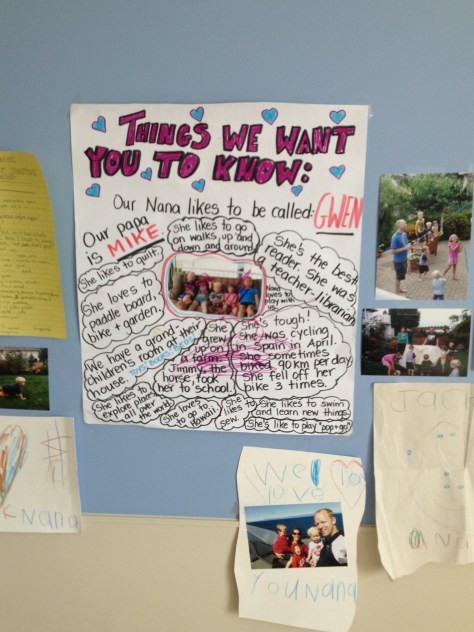 THINGS WE WANT
YOU TO KNOW:
Our Nana likes to be called: GWEN
Our papa
is MIKE.
She likes to go
on walks, up and
down and around.
She's the best
reader. She was
a teacher-librarian
She likes to quilt.
Nana
loves to
play with
us.
She loves to
paddle board,
bike + garden.
We have a grand-
children's room in their
house.
She
grew
up on
a farm.
Jimmy, the
horse, took
her to school.
She's tough!
She was cycling
in Spain in April.
She sometimes
biked 90km per day.
She fell off her
bike 3 times.
She likes to
explore places
all over
the world.
She loves
to go to
Hawaii.
She
likes to
sew.
She likes to swim
and learn new things.
She's like to play "pop+go"
Nana
We
love
You Nana
Jac
Na